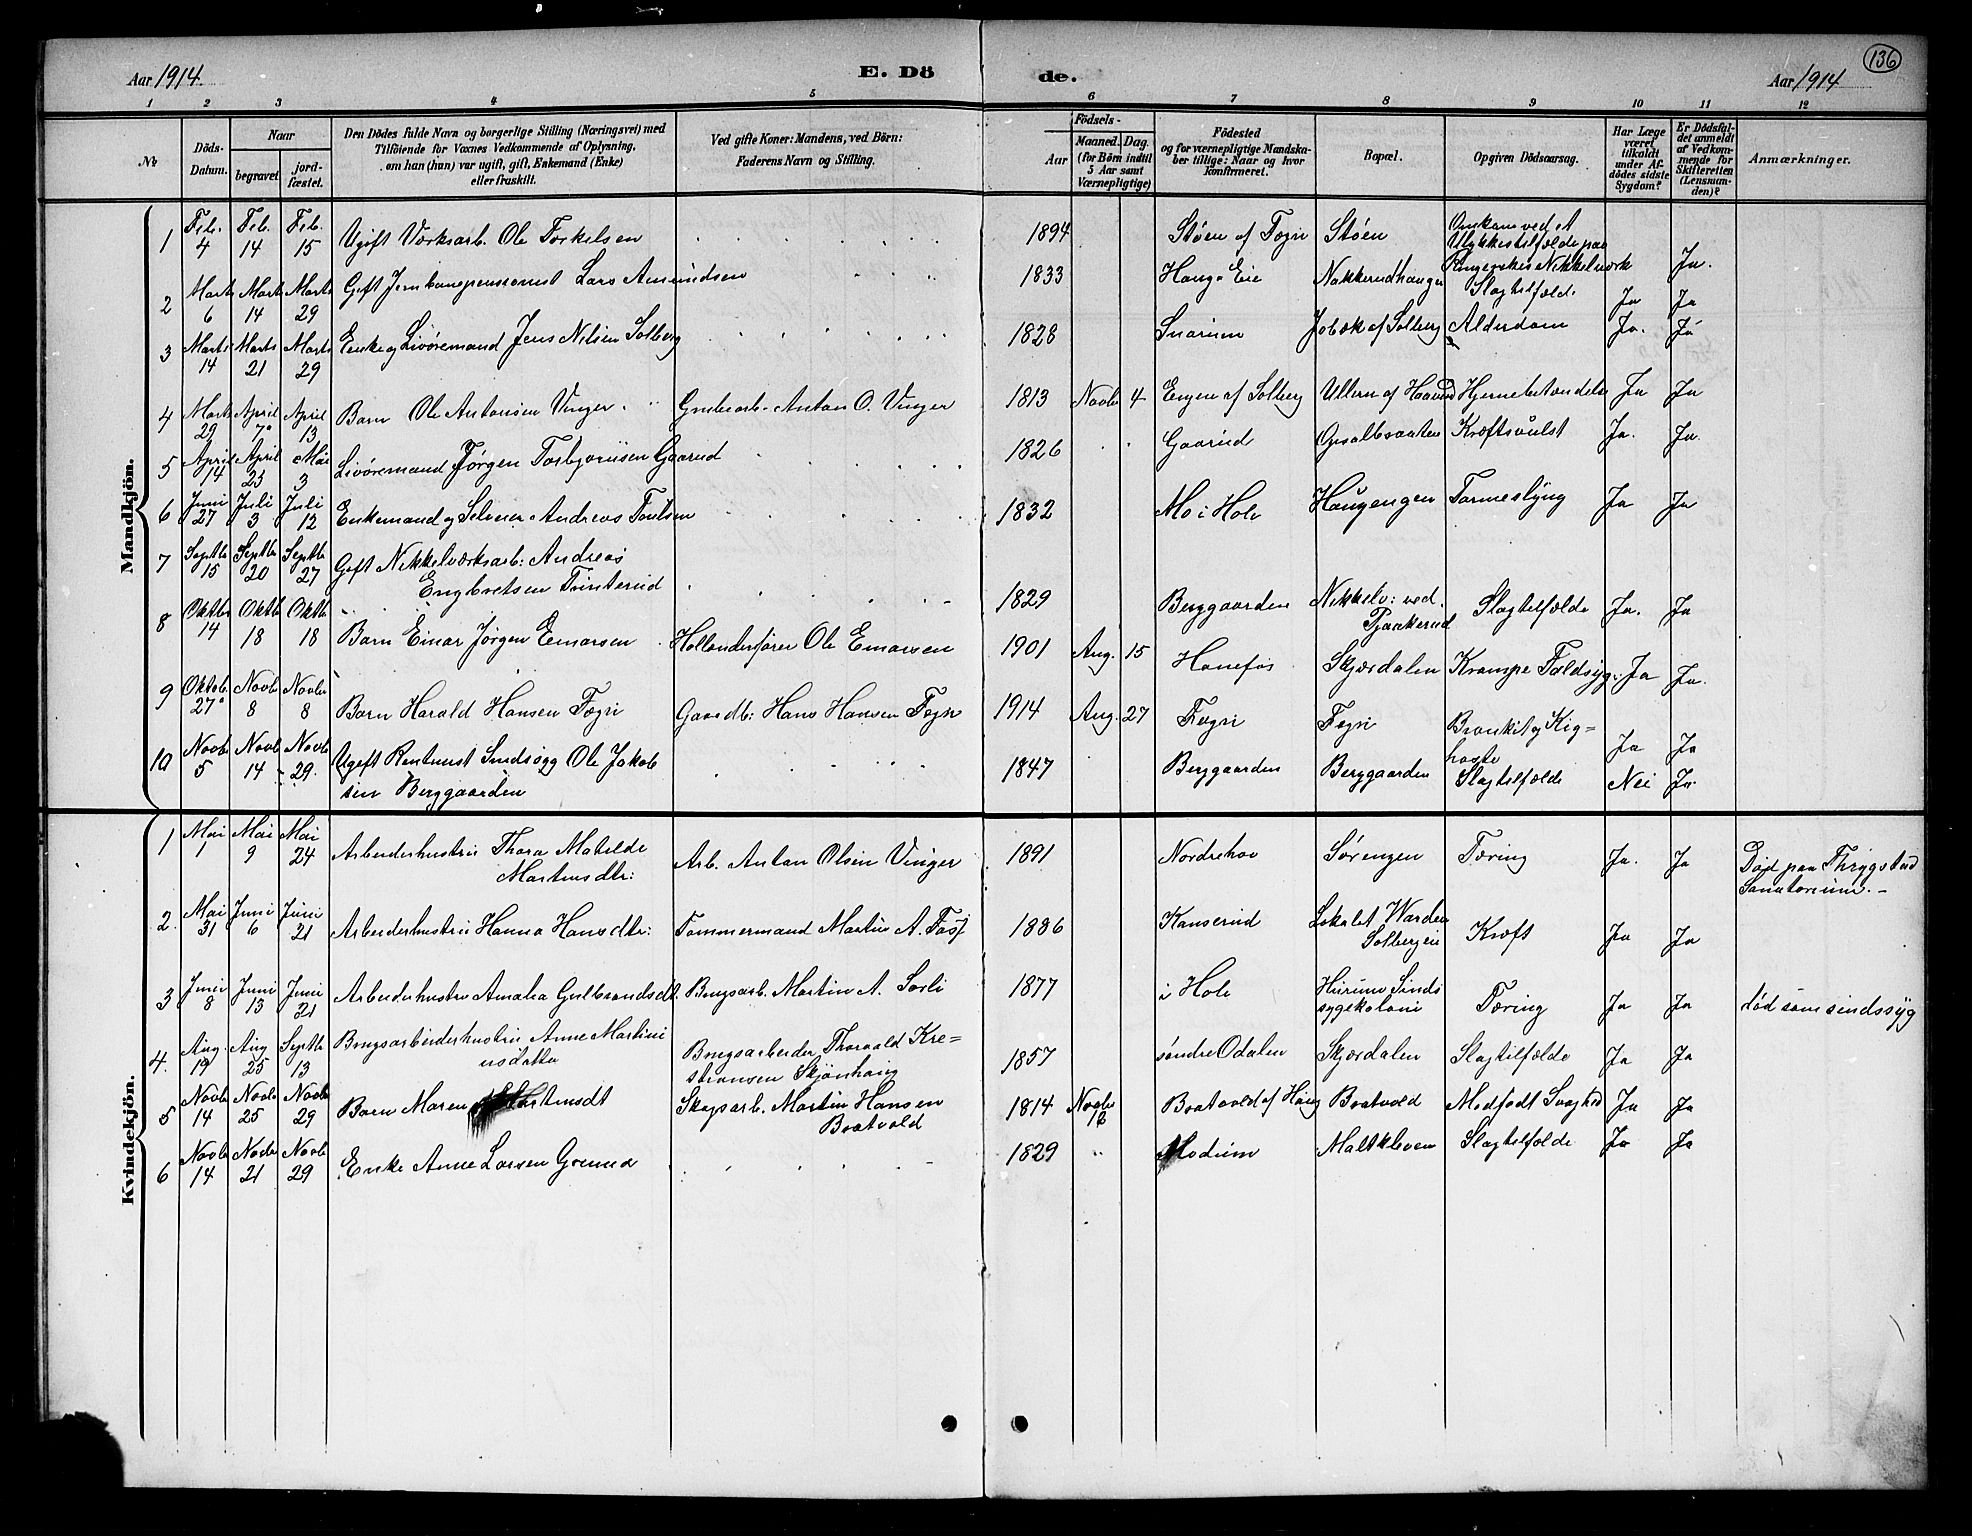 136
Aar 1914. E. Dö de. Aar 1914
1 2 3 4 5 6 7 8 9 10 11 12
No
Döds-Datum.
Naar
begravet
jord-fæstet.
Den Dödes fulde Navn og borgerlige Stilling (Næringsvei) med
Tilföiende for Voxnes Vedkommende af Oplysning,
om han (hun) var ugift, gift, Enkemand (Enke)
eller fraskilt.
Ved gifte Koner: Mandens, ved Börn:
Faderens Navn og Stilling.
Födsels-
Aar
Maaned. Dag.
(for Börn indtil
5 Aar samt
Værnepligtige)
Födested
og for værnepligtige Mandska-
ber tillige: Naar og hvor
konfirmeret.
Bopæl.
Opgiven Dödsaarsag.
Har Læge
været
tilkaldt
under Af-
dödes sidste
Sygdom?
Er Dödsfal-
det anmeldt
af Vedkom-
mende for
Skifteretten
(Lensman-
den)?
Anmærkninger.
Mandkjön.
1 Feb. 4 Feb. 14 Feb. 15 Ugift Værksarb. Ole Torkelsen 1894 Støen af Fægri Støen Omkom ved et
Ulykkestilfælde paa
Ringerikes Nikkelværk Ja.
2 Marts 6 Marts 14 Marts 29 Gift Jernbanepensionist Lars Amundsen 1833 Haugs Eie Nakkerudhaugen Slagtilfælde Ja Ja
3 Marts 14 Marts 21 Marts 29 Enke og Livøremand Jens Nilsen Solberg 1828 Snarum Jobæk af Solberg Alderdom Ja. Ja
4 Marts 29 April 7 April 13 Barn Ole Antonsen Vinger. Grubearb. Anton O. Vinger 1813 Novbr 4 Engen af Solberg Ullern af Hjernebetændelse Ja Ja
5 April 14 April 25 Mai 3 Livøremand Jørgen Torbjørnsen Gaarud 1826 Gaarud Opsalbraaten Kræftsvulst Ja. Ja.
6 Juni 27 Juli 3 Juli 12 Enkemand og Selveier Andreas Paulsen 1832 Mo i Hole Haugengen Tarmeslyng Ja Ja
7 Septbr 15 Septbr 20 Septbr 27 Gift Nikkelværksarb: Andreas
Engbretsen Tønterud 1829 Berggaarden Nikkelv: ved
Tjaakerud Slagtilfælde Ja. Ja
8 Oktbr 14 Oktbr 18 Oktbr 18 Barn Einar Jørgen Einarsen Hollænderfører Ole Einarsen 1901 Aug. 15 Hønefos Skjærdalen Krampe Faldsyg. Ja Ja.
9 Oktob. 27 Novbr 8 Novbr 8 Barn Harald Hansen Fægri Gaardb: Hans Hansen Fægri 1914 Aug. 27 Fægri Fægri Bronkit og Kig=
hoste Ja Ja
10 Novbr 5 Novbr 14 Novbr 29. Ugift Rentenist Sindssyg Ole Jakob
sen Berggaarden 1847 Berggaarden Berggaarden Slagtilfælde Nei Ja.
Kvindekjön.
1 Mai 1 Mai 9 Mai 24 Arbeiderhustru Thora Matilde
Martinsdtr: Arb. Anton Olsen Vinger 1891 Nordrehov Sørengen Tæring Ja. Ja Død paa Thrygstad
Sanatorium. -
2. Mai 31 Juni 6 Juni 21 Arbeiderhustru Hanna Hansdtr: Tømmermand Martin A. Fast 1886 Kanserud Lokalet Warden
Solbergeie Kræft Ja Ja
3 Juni 8 Juni 13 Juni 21 Arbeiderhustru Amalia Gulbrandsdt. Brugsarb. Martin A. Sørli 1877 i Hole Hurums Sinds
sygekoloni Tæring Ja Ja død som sindssyg
4. Aug. 19 Aug 25 Septbr 13 Brugsarbeiderhustru Anne Martini
usdatter Brugsarbeider Thorvald Kre=
stiansen Skjønhaug 1857 søndre Odalen Skjærdalen Slagtilfælde Ja Ja
5 Novbr 14 Novbr 25 Novbr 29 Barn Maren Martinsdt Skogsarb. Martin Hansen
Bratvold 1814 Novbr 12 Bratvold af Haug Bratvold Medfødt Svaghed Ja Ja
6 Novbr 14 Novbr 21 Novbr 29 Enke Anne Larsen Grønnd 1829 Modum Maltkleven Slagtilfælde Ja Ja